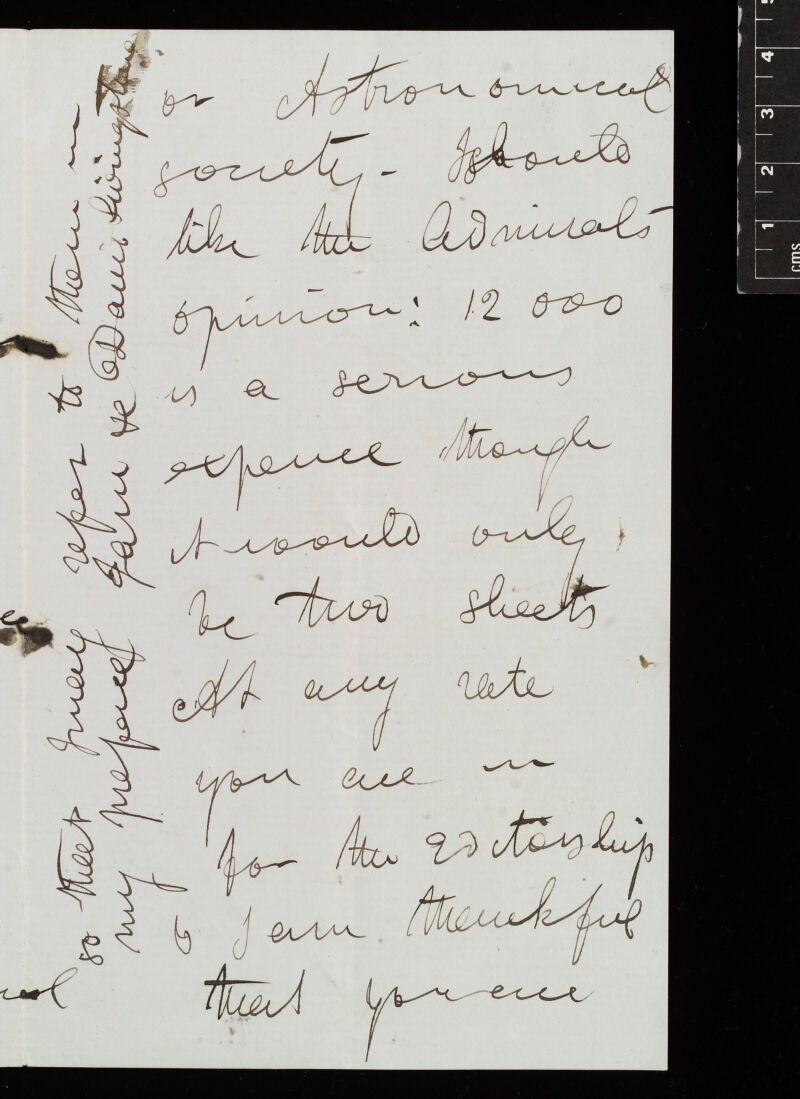 or Astronomical
society - I should
like the Admirals
opinion: 12 000
is a serious
expence though
it would only
be two sheets
At any rate
you are in
for the Editorship
& I am thankful
that you are
so that I may refer to them in
my preface I am &c David Livingstone
cms
1
2
3
4
5